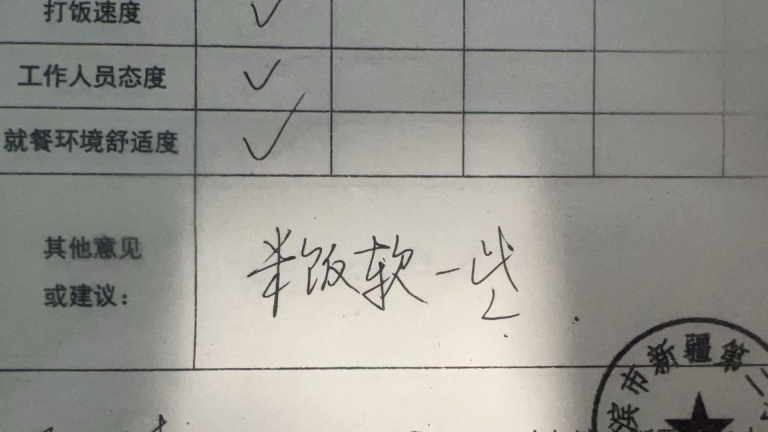 打饭速度
工作人员态度
就餐环境舒适度
其他意见
或建议：
米饭软一些.
滨市新疆